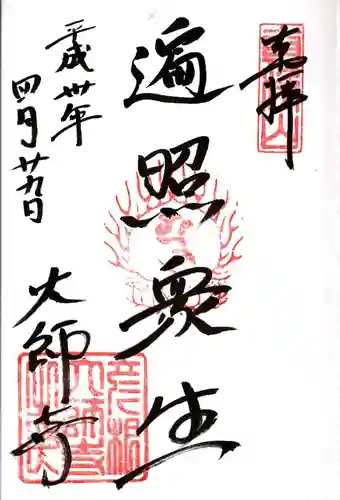 奉拝
遍照衆生
平成卅年
四月廿九日
大師寺